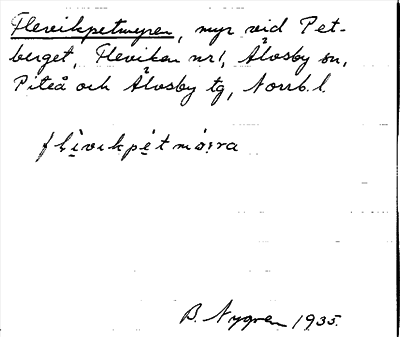 Flevikpetmyren, myr vid Pet-
berget, Fleviken nr 1, Älvsby sn,
Piteå och Älvsby tg, Norrb. l.
flivikpetmöira
B. Nygren 1935.